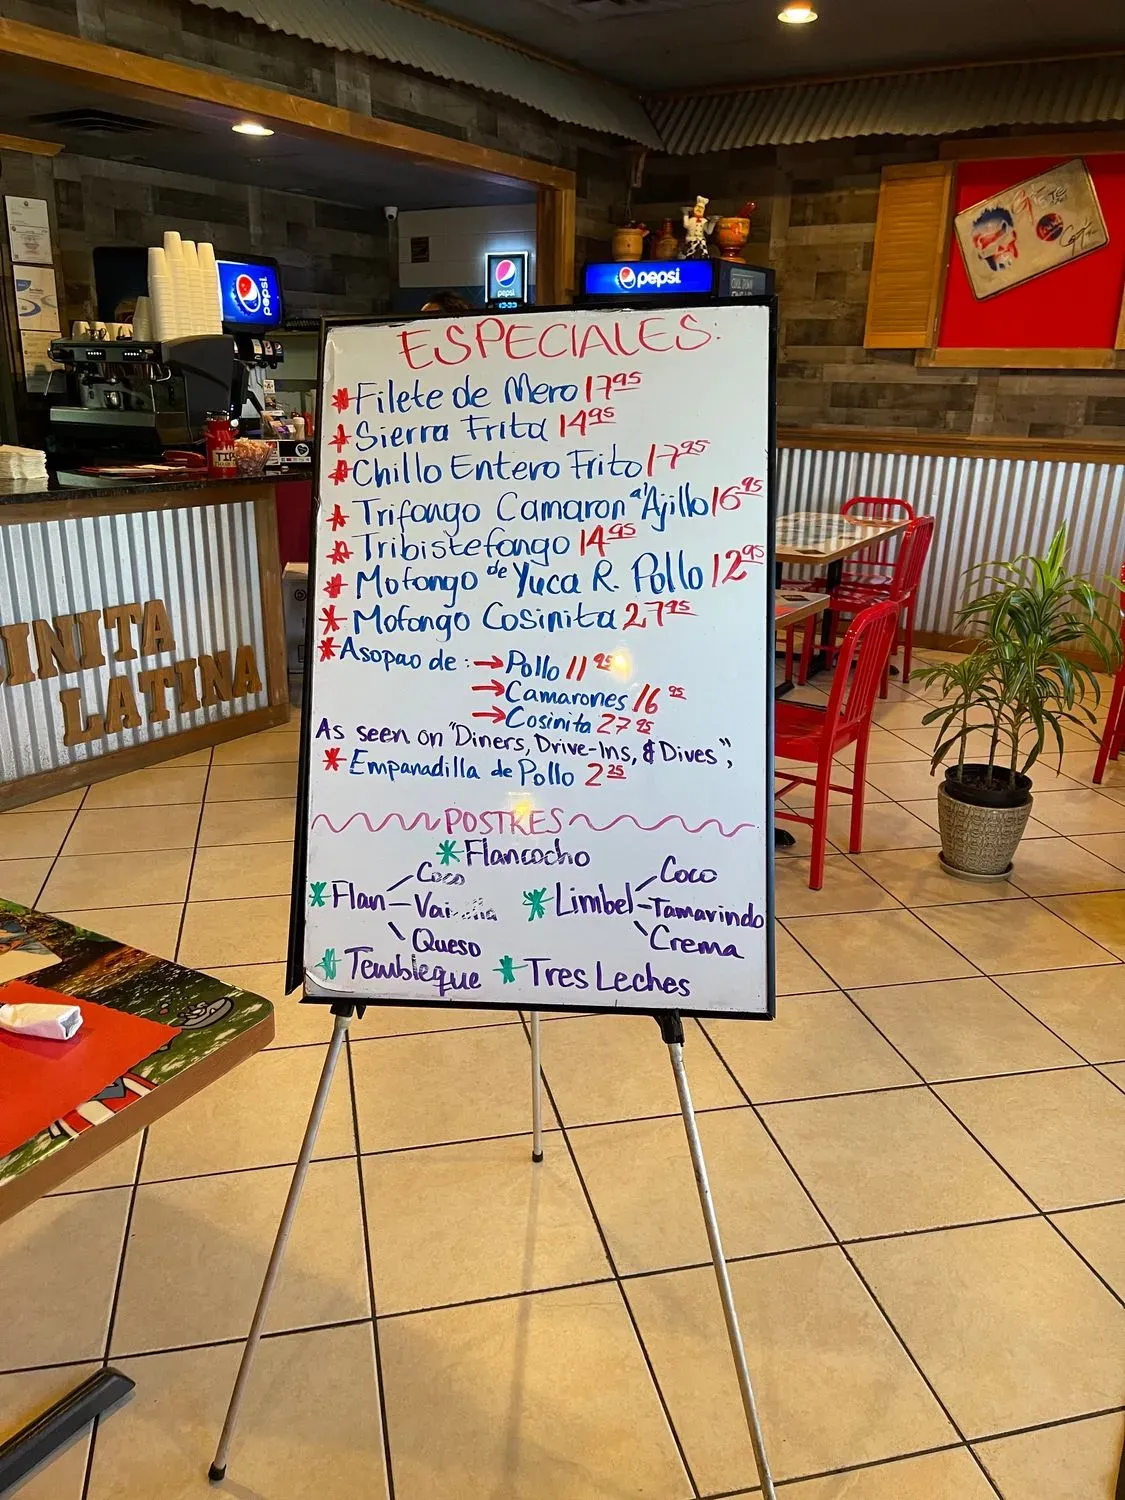 ESPECIALES:
* Filete de Mero 17 95
* Sierra Frita 14 95
* Chillo Entero Frito 17 95
* Trifongo Camaron al Ajillo 16 95
* Tribistefongo 14 95
* Mofongo de Yuca R. Pollo 12 95
* Mofongo Cosinita 27 95
* Asopao de: → Pollo 11 95
→ Camarones 16 95
→ Cosinita 27 95
As seen on "Diners, Drive-Ins, & Dives",
* Empanadilla de Pollo 2 25
POSTRES
* Flancocho
* Flan
Coco
Vainilla
Queso
* Limbel
Coco
Tamarindo
Crema
* Tembleque
* Tres Leches
pepsi
pepsi
pepsi
INITA
LATINA
TIPS